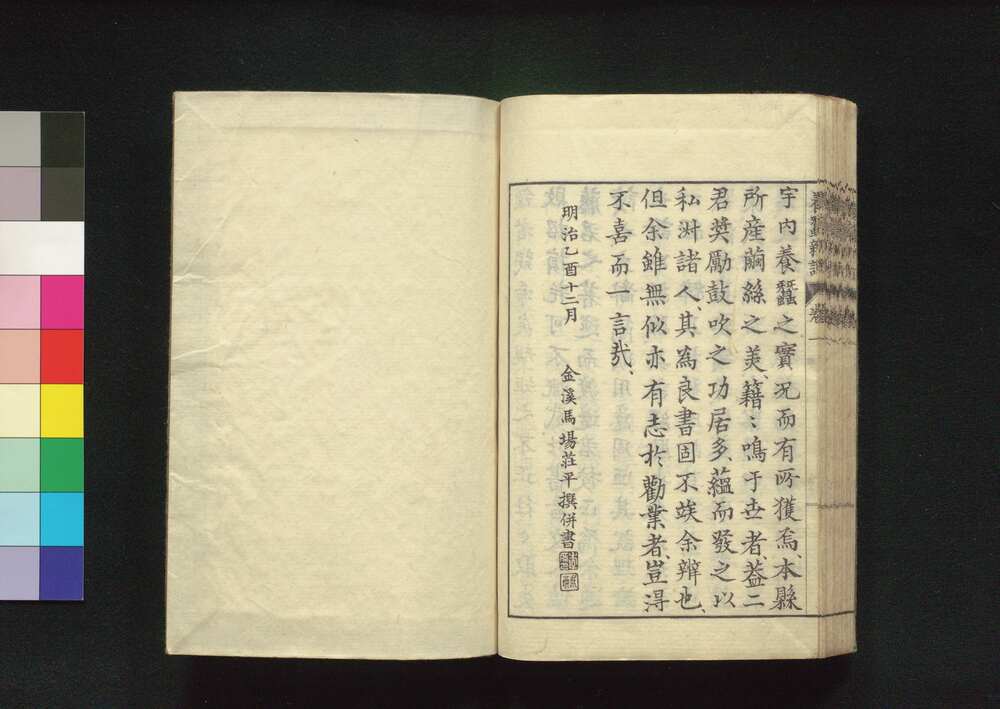 宇内養蠶之實况而有所獲焉、本縣
所産繭絲之美、籍〻鳴于世者、益二
君奬勵鼓吹之功居多、蘊而發之以
私淑諸人、其為良書固不竢余辨也、
但余雖無似亦有志於勸業者、豈淂
不喜而一言哉、
明治乙酉十二月
金溪馬場莊平撰併書